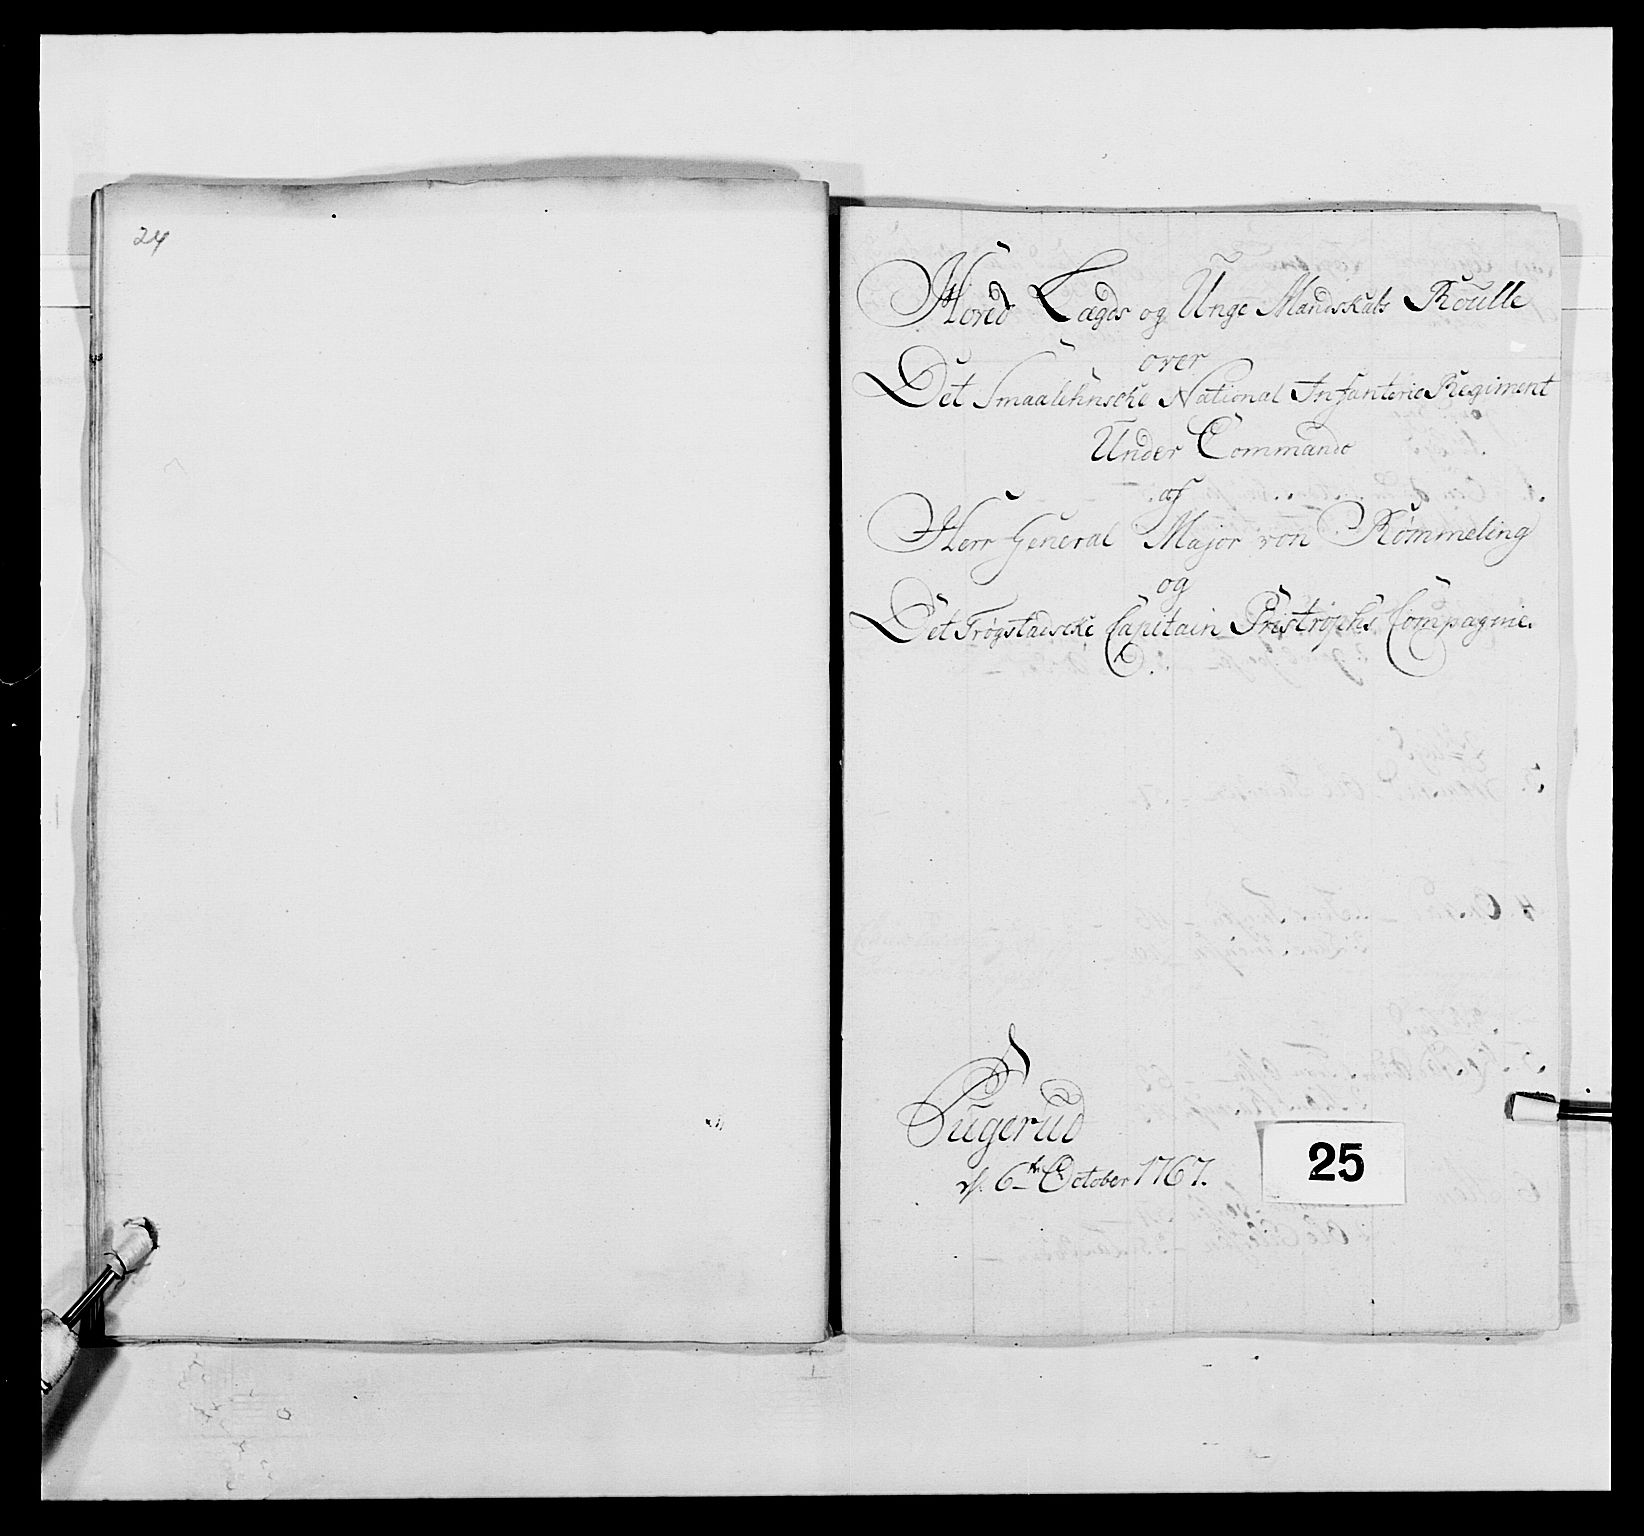 24
Hoved Lægds og Unge Mandskabs Roulle
over
Det Smaalehnscke National Infanterie Regiment
Under Commando
af
Herr General Major von Rømmeling
og
Det Trøgstadscke Capitain Pristrophs Compagnie.
Sugerud
d. 6te October 1767.
25